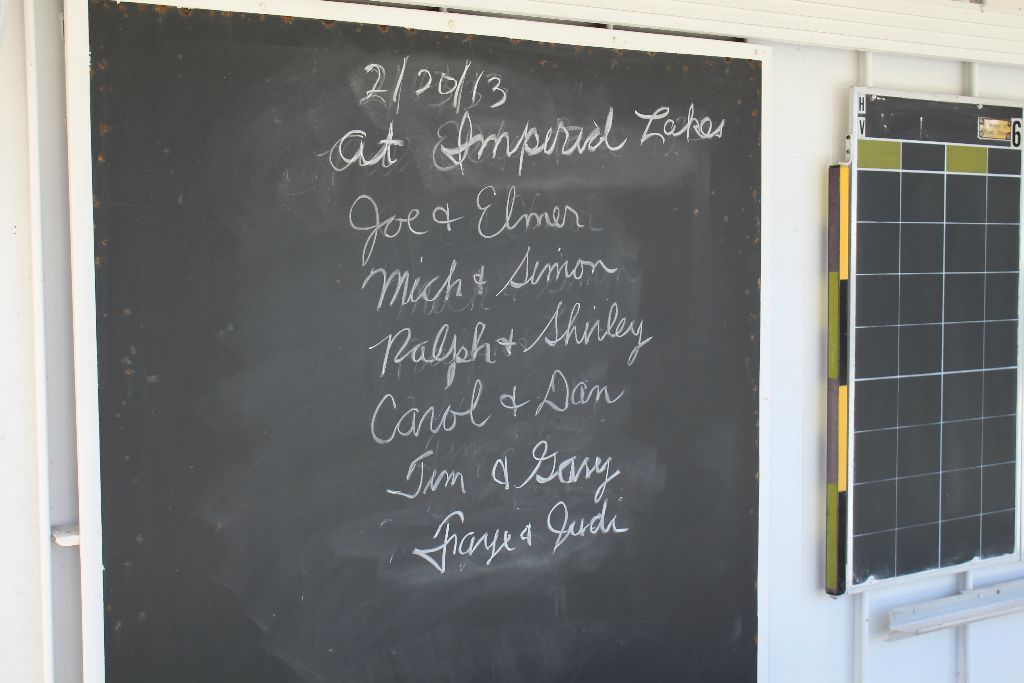 2/20/13
at Imperial Lakes
Joe & Elmer
Mich & Simon
Ralph & Shirley
Carol & Dan
Jim & Gary
Fraye & Judi
H
V
6